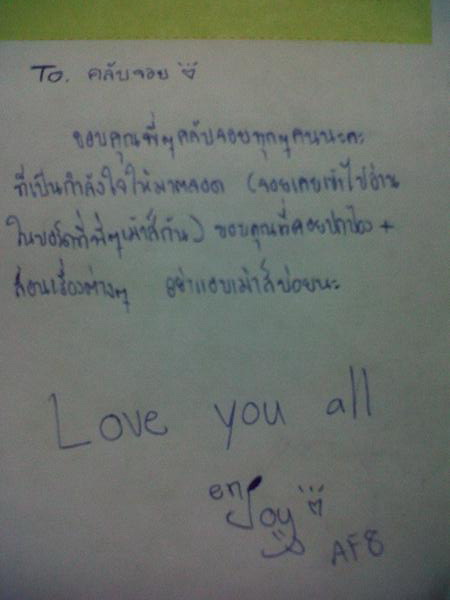 To. คลับจอย
ขอบคุณพี่ๆคลับจอยทุกๆคนนะคะ
ที่เป็นกำลังใจให้มาตลอด (จอยเคยเข้าไปอ่าน
ในบอร์ดที่พี่ๆเม้าส์กัน) ขอบคุณที่คอยปกป้อง +
สอนเรื่องต่างๆ อย่าแอบเม้าส์บ่อยนะ
Love you all
enJoy
AF8